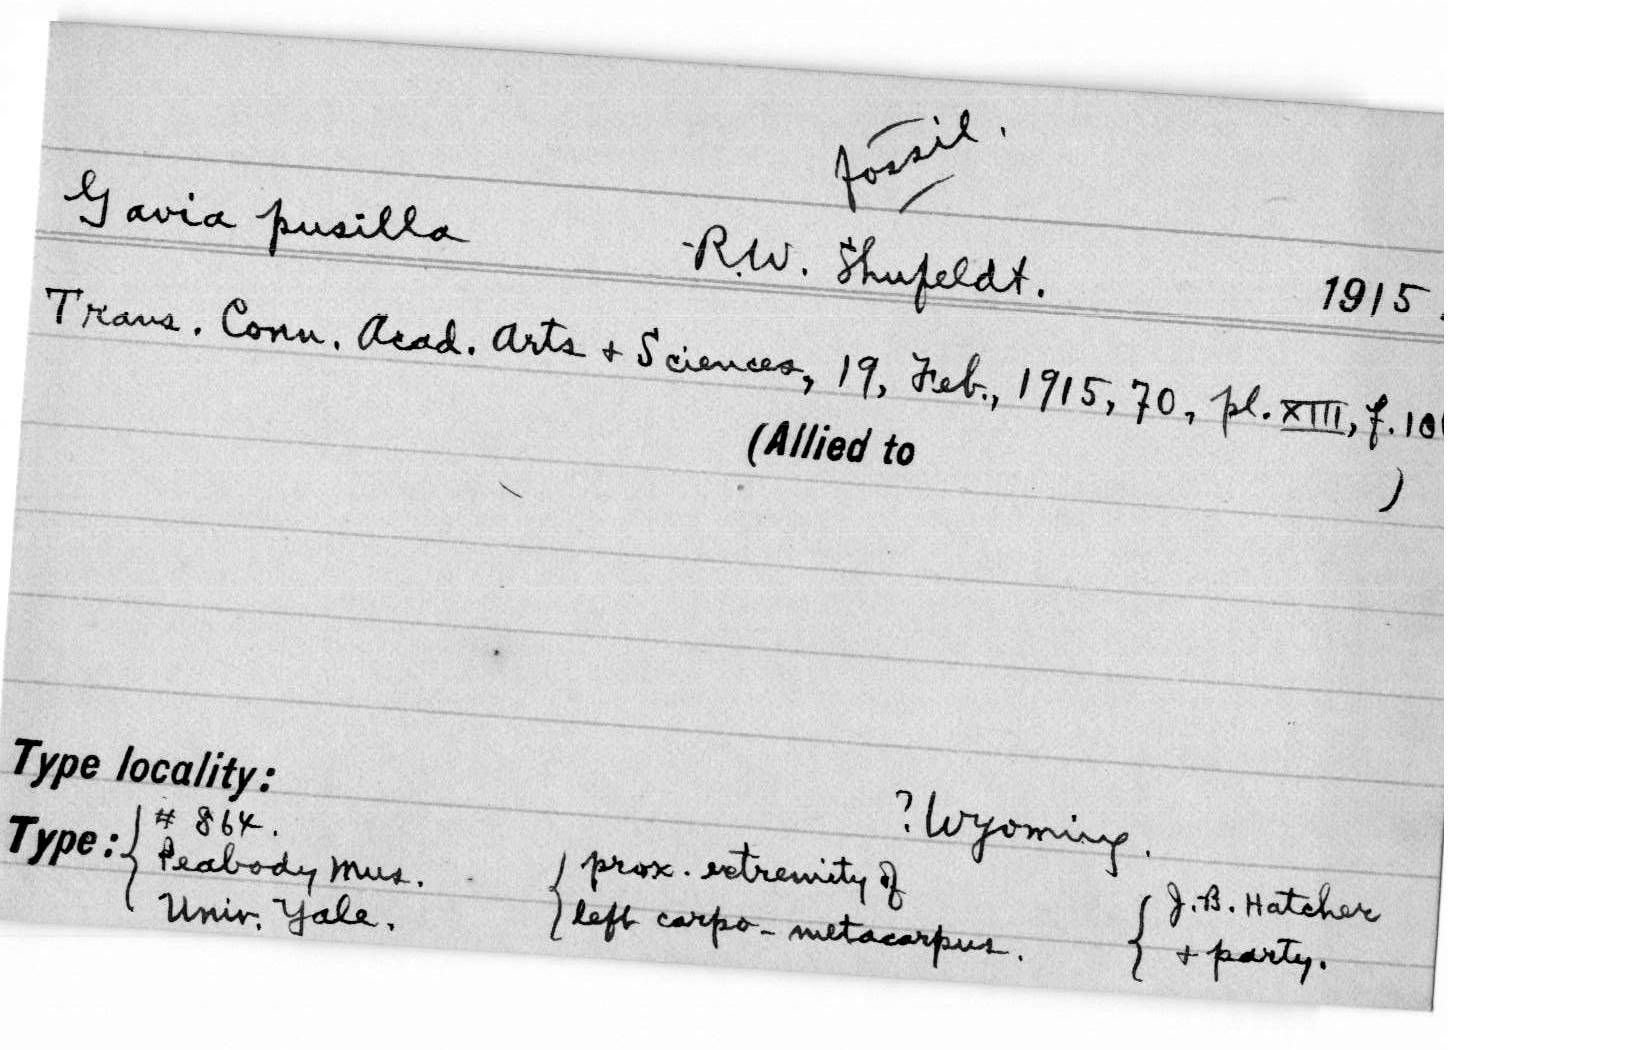 fossil.
Gavia pusilla -R.W. Shufeldt. 1915.
Trans. Conn. Acad. Arts + Sciences, 19, Feb., 1915, 70, pl. XIII, f.
(Allied to )
Type locality: ?Wyoming.
Type: { # 864. Peabody Mus. Univ. Yale. { prox. extremity of left carpo-metacarpus. { J.B. Hatcher + party.